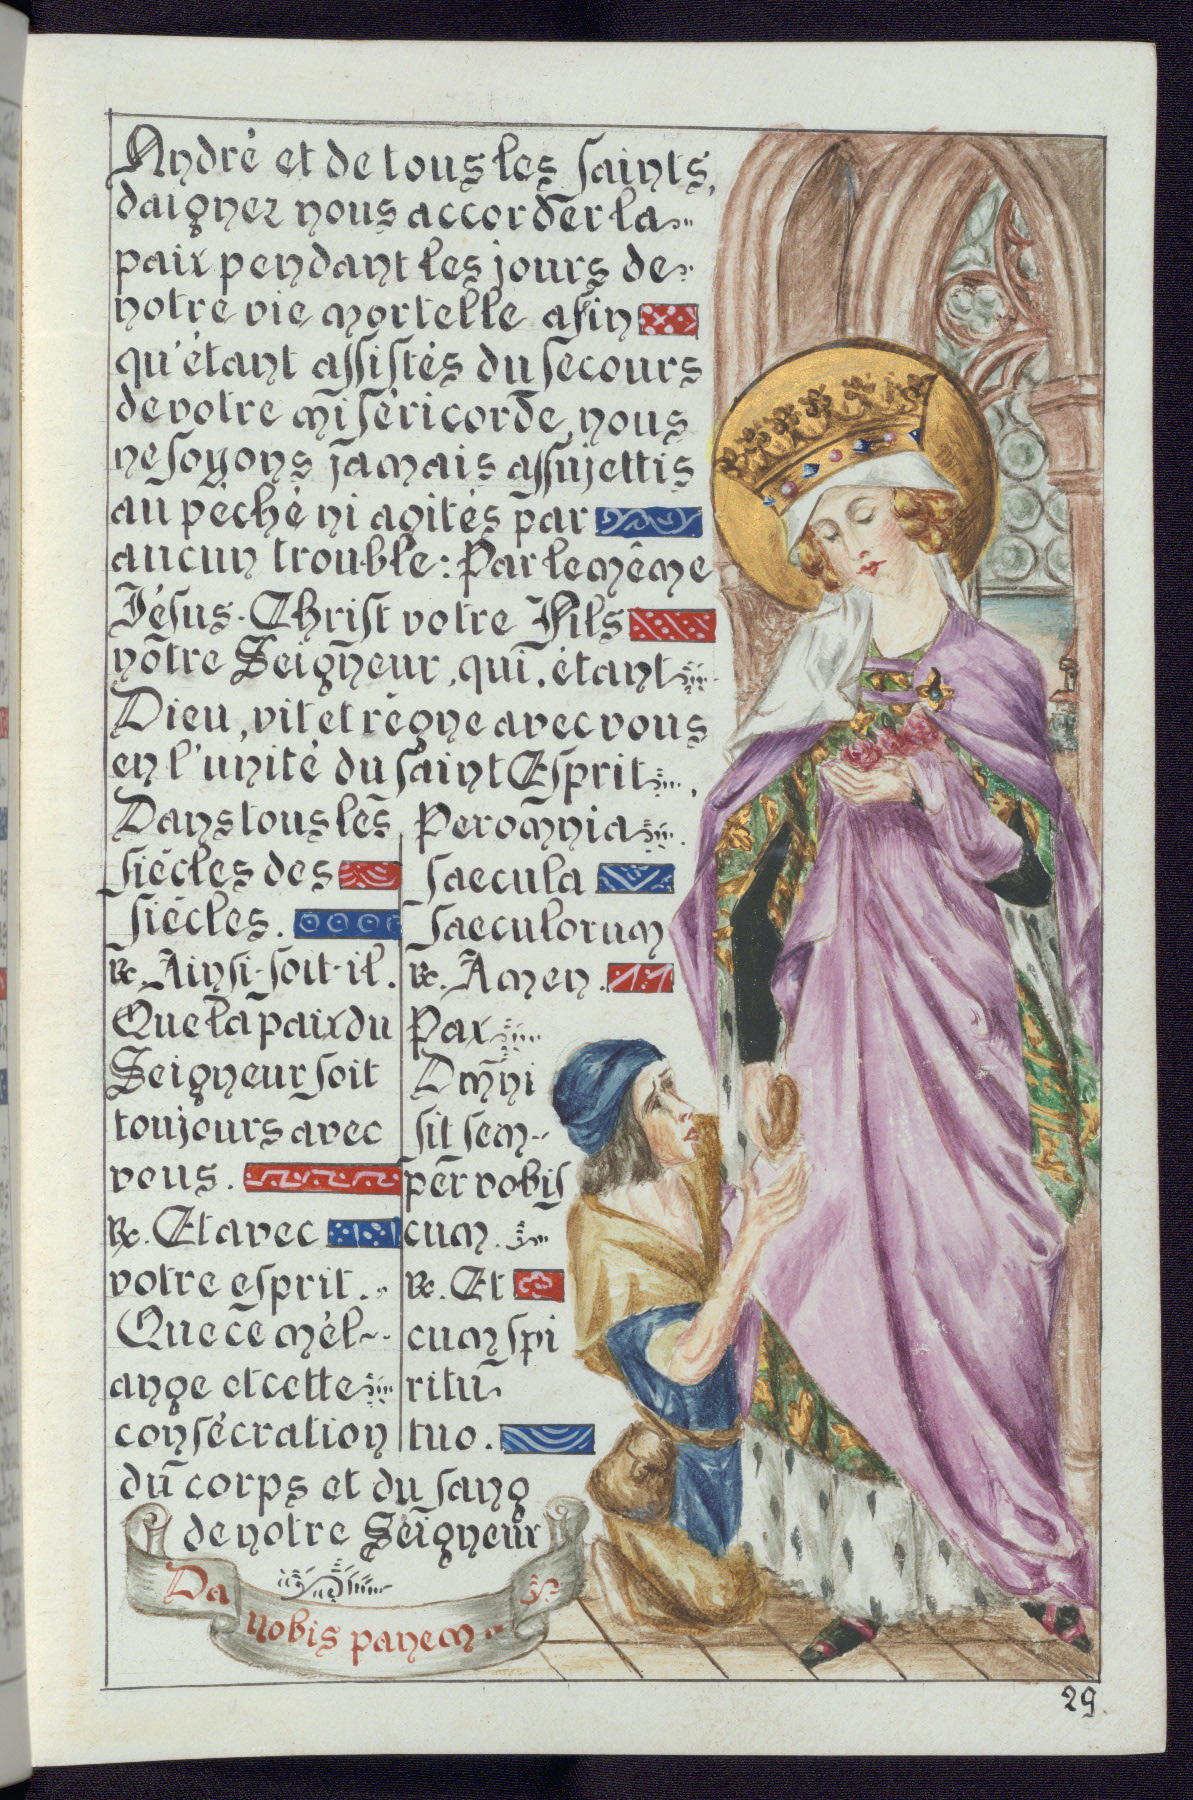 André et de tous les saints,
daignez nous accorder la
paix pendant les jours de
notre vie mortelle afin
qu'étant assistés du secours
de votre miséricorde, nous
ne soyons jamais assujettis
au péché ni agités par
aucun trouble: Par le même
Jésus-Christ votre Fils
notre Seigneur, qui, étant
Dieu, vit et règne avec vous
en l'unité du saint Esprit.
Dans tous les
siècles des
siècles.
℟. Ainsi-soit-il.
Que la paix du
Seigneur soit
toujours avec
vous.
℟. Et avec
votre esprit.
Que ce mél-
ange et cette
consécration
Per omnia
saecula
saeculorum
℟. Amen.
Pax
Dmni
sit sem-
per vobis
cum.
℟. Et
cum spi
ritu
tuo.
du corps et du sang
de notre Seigneur
Da
nobis panem
29